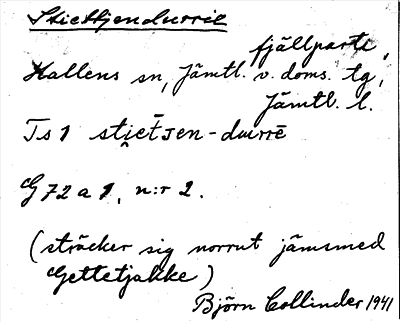 Stiettjendurrie
fjällparti,
Hallens sn, Jämtl. v. doms. tg,
Jämtl. l.
Ts 1 sti̭et̄jen-durrē
G 72 a 1, n:r 2.
(sträcker sig norrut jämsmed
Gettetjakke)
Björn Collinder 1941